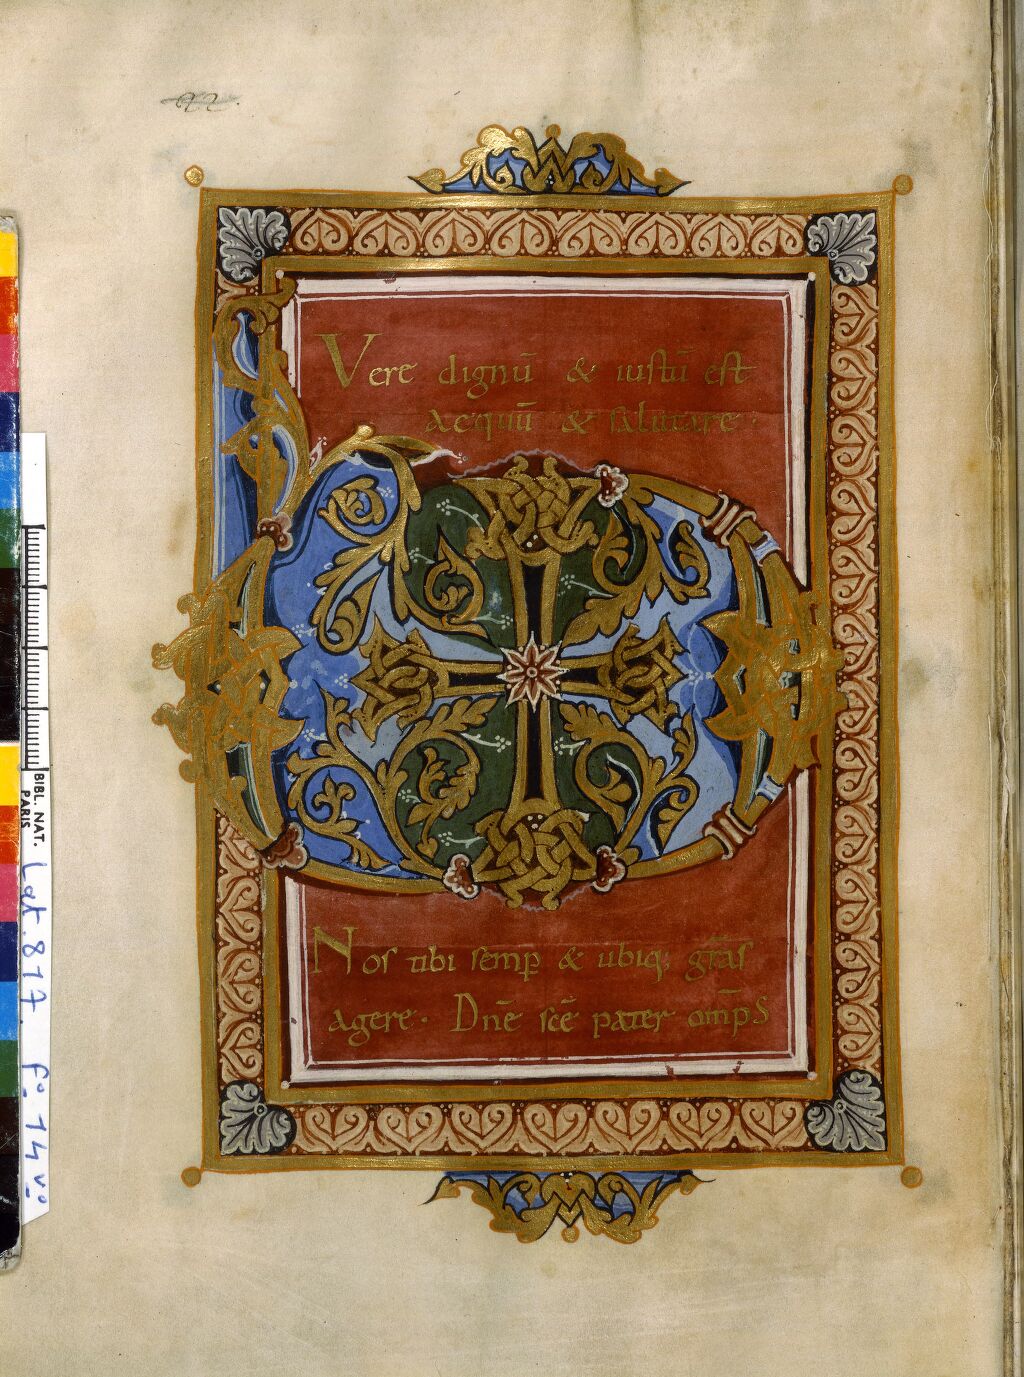 Vere dignū & iustū est
aequū & salutare .
Nos tibi semꝑ & ubiq; gr̄as
agere . Dn̄e sc̄e pater omp̄s
BIBL. NAT.
PARIS
Lat. 817. fo. 14 vo